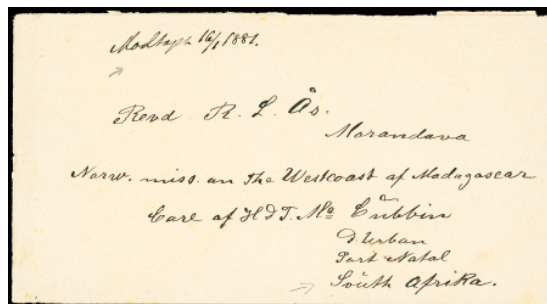 Modtagen 16/1 1881.
Revd R. L. Ås.
Morandava
Norw. miss. on the Westcoast of Madagascar
Care of H & T. Mc Cubbin
D'Urban
Port Natal
South Afrika.